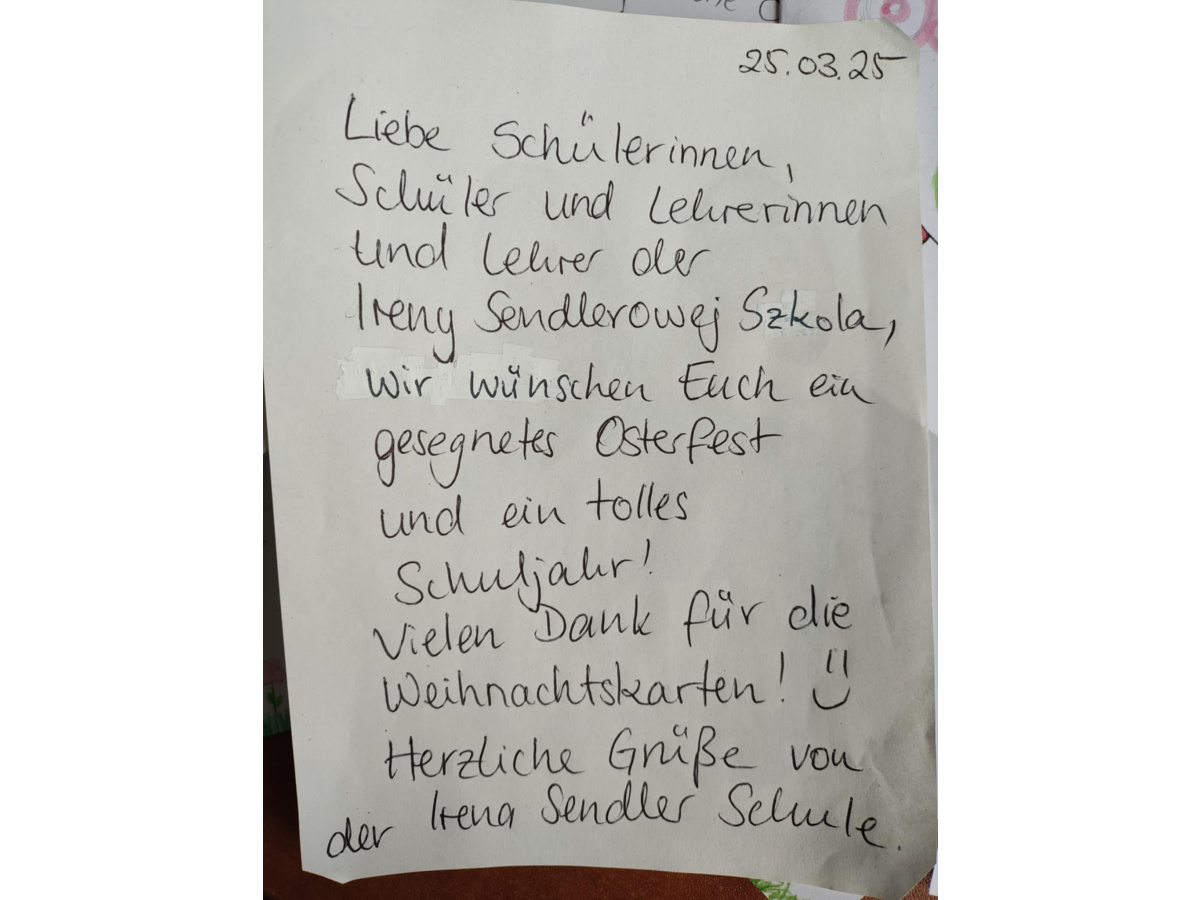 25.03.25
Liebe Schülerinnen,
Schüler und Lehrerinnen
und Lehrer der
Ireny Sendlerowej Szkola,
wir wünschen Euch ein
gesegnetes Osterfest
und ein tolles
Schuljahr!
Vielen Dank für die
Weihnachtskarten! Ü
Herzliche Grüße von
der Irena Sendler Schule.